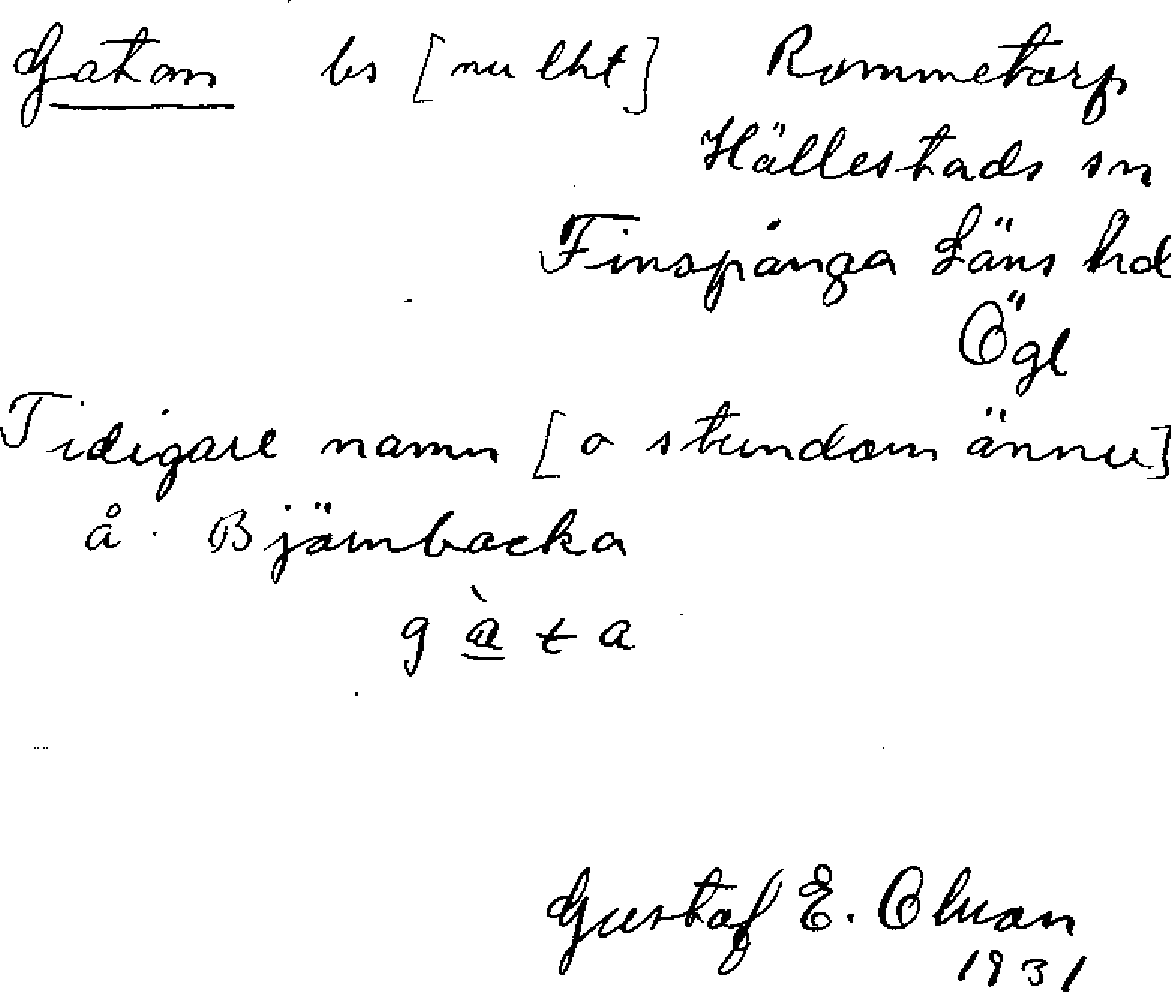 Gatan bs [nu lht] Rommetorp
Hällestads sn
Finspånga läns hd
Ögl
Tidigare namn [o stundom ännu]
å Björnbacka
g à t a
Gustaf E.
1931